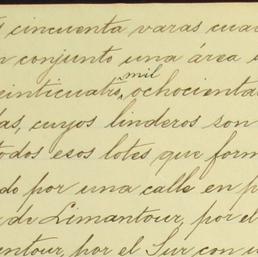 cincuenta varas cua
conjunto una área
einticuatro mil ochocienta
as, cuyos linderos son
odos esos lotes que form
do por una calle en p
de Limantour, por el
entour, por el Sur con